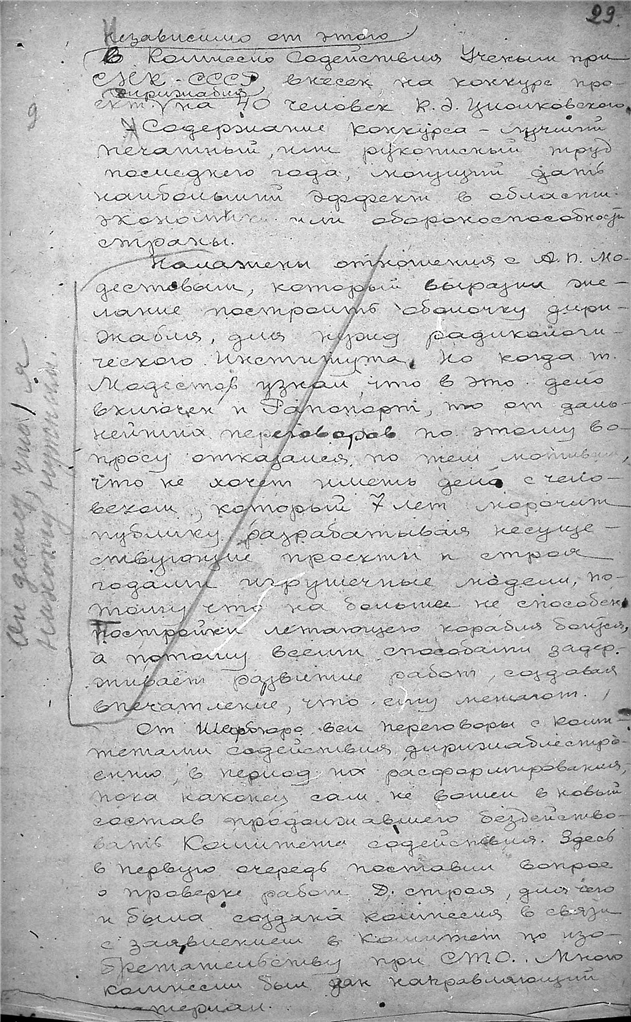 29.
Независимо от этого
В Комиссию Содействия Ученым при
СНК-СССР внесен на конкурс про-
дирижабля
ект на 40 человек К.Э. Циолковского.
Содержание конкурса – лучший
печатный, или рукописный труд
последнего года, могущий дать
наибольший эффект в области
экономики или обороноспособности
страны.
Налажены отношения с А.П. Мо-
дестовым, который выразил же-
лание построить оболочку дири-
жабля, для нужд
ческого Института. Но когда т.
Модестов узнал, что в это дело
включен и Рапопорт, то от даль-
нейших переговоров по этому во-
просу отказался по тем мотивам,
что не хочет иметь дело с чело-
веком, который 7 лет морочит
публику, разрабатывая несуще-
ствующие проекты и строя
годами игрушечные модели, по-
тому что на больше не способен.
Постройки летающего корабля боится,
а потому всеми способами задер-
живает развитие работ, создавая
впечатление, что ему мешают.
От вел переговоры с коми-
тетами содействия дирижаблестро-
ению, в период их расформирования,
пока наконец сам не вошел в новый
состав продолжавшего бездейство-
вать Комитета содействия. Здесь
в первую очередь поставил вопрос
о проверке работ Д. строя, для чего
и была создана комиссия в связи
с заявлением в Комитет по изо-
бретательству при СТО. Мною
комиссии был дан направляющий
материал.
Он делец, что